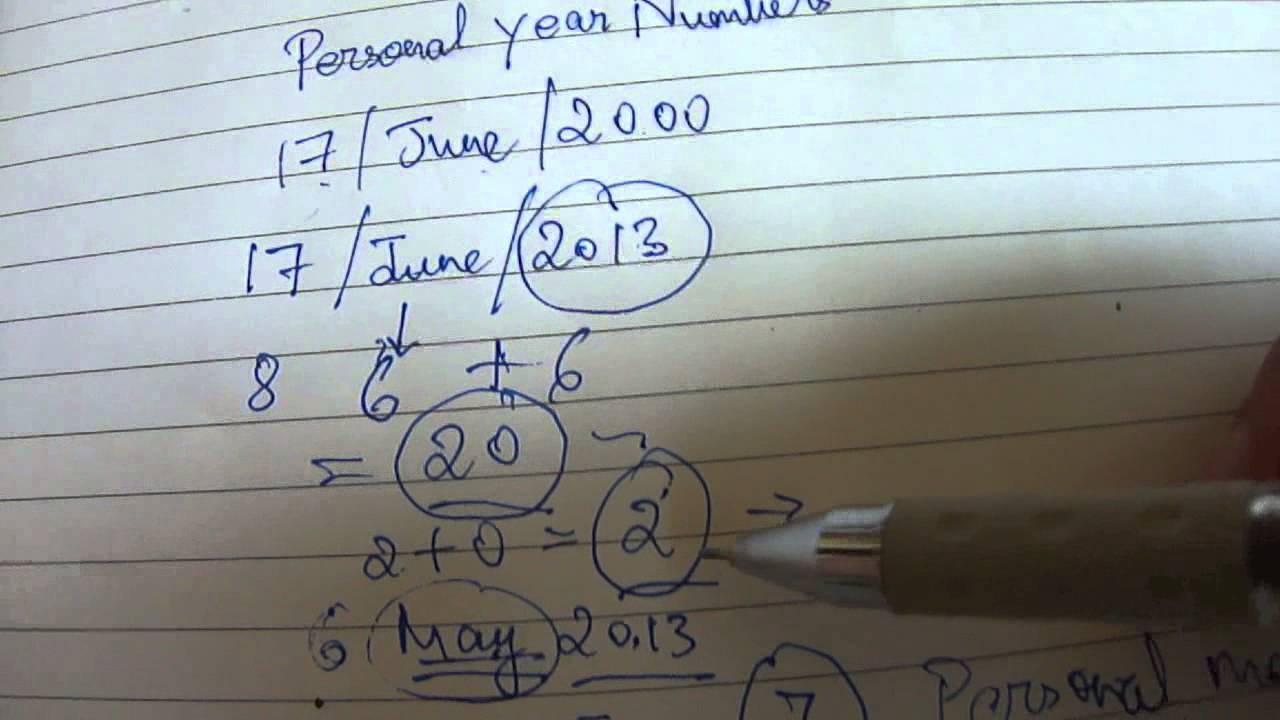 Personal year Numbers
17/June/2000
17/June/2013
↓
8 6 + 6
= 20
2+0 = 2 →
6 May 2013
= 7 Personal